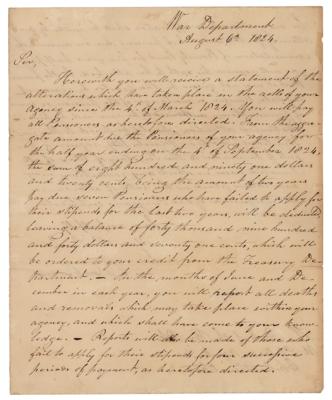 War Department
August 6th 1824.
Sir,
Herewith you will receive a statement of the
alterations which have taken place in the rolls of your
Agency since the 4th of March 1824. You will pay
all Pensioners as heretofore directed. From the aggre-
gate amount due the Pensioners of your agency for
the half year ending on the 4th of September 1824,
the sum of eight hundred and ninety one dollars
and twenty cents, being the amount of two years
pay due seven Pensioners who have failed to apply for
their stipends for the last two years, will be deducted
leaving a balance of forty thousand nine hundred
and forty dollars and seventy one cents, which will
be ordered to your credit from the Treasury De-
partment. – In the months of June and De-
cember in each year, you will report all deaths
and removals which may take place within your
agency, and which shall have come to your know-
ledge. – Reports will also be made of those who
fail to apply for their stipends for four successive
periods of payment, as heretofore directed.